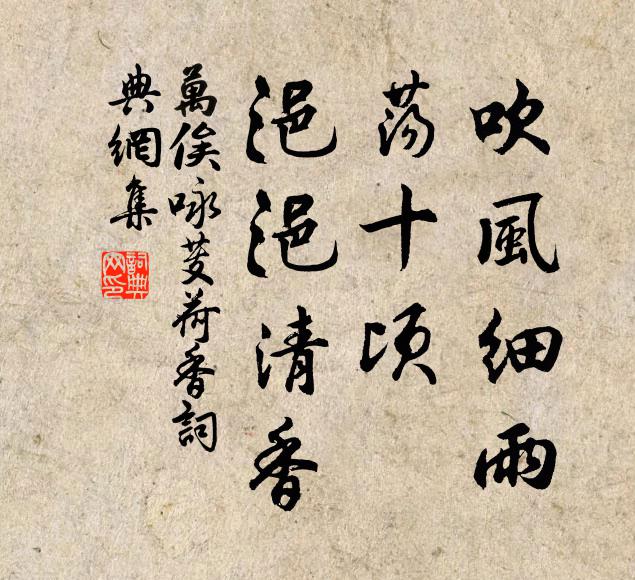 吹風細雨
蕩十頃
浥浥清香
萬俟咏芰荷香詞
典網集
詞典
网印